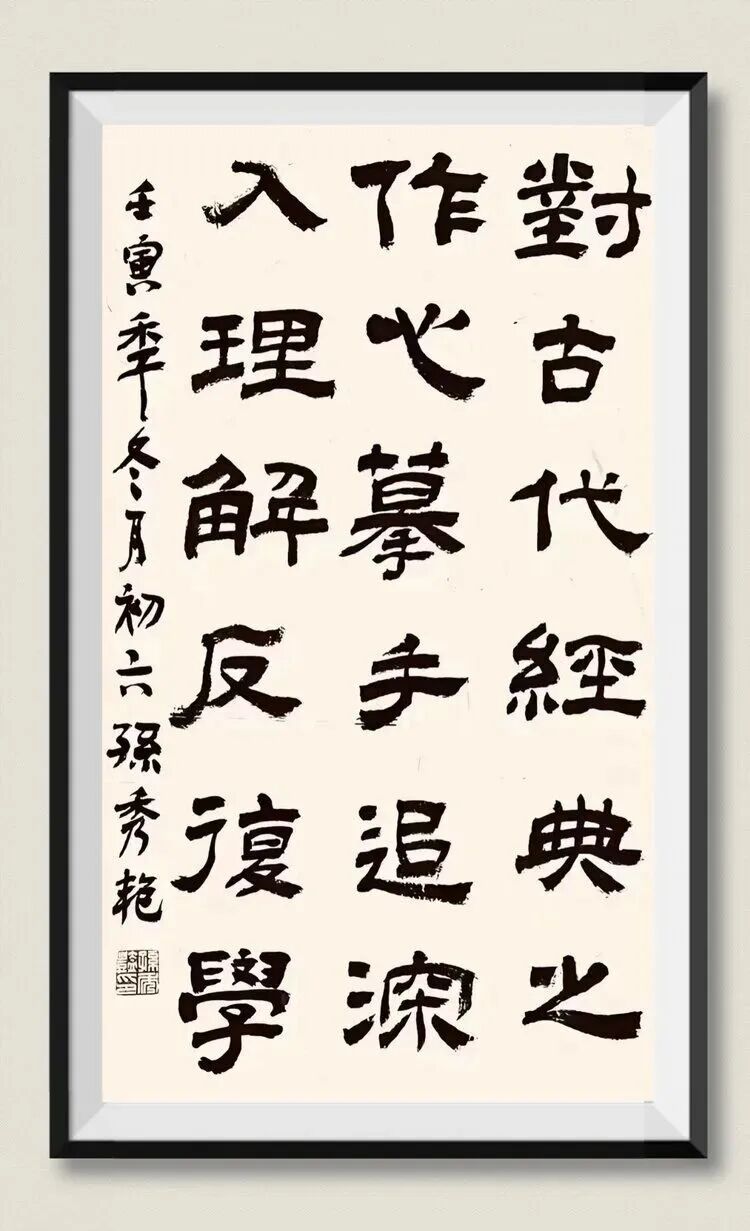 對古代經典之
作心摹手追深
入理解反復學
壬寅年冬月初六孫秀艳